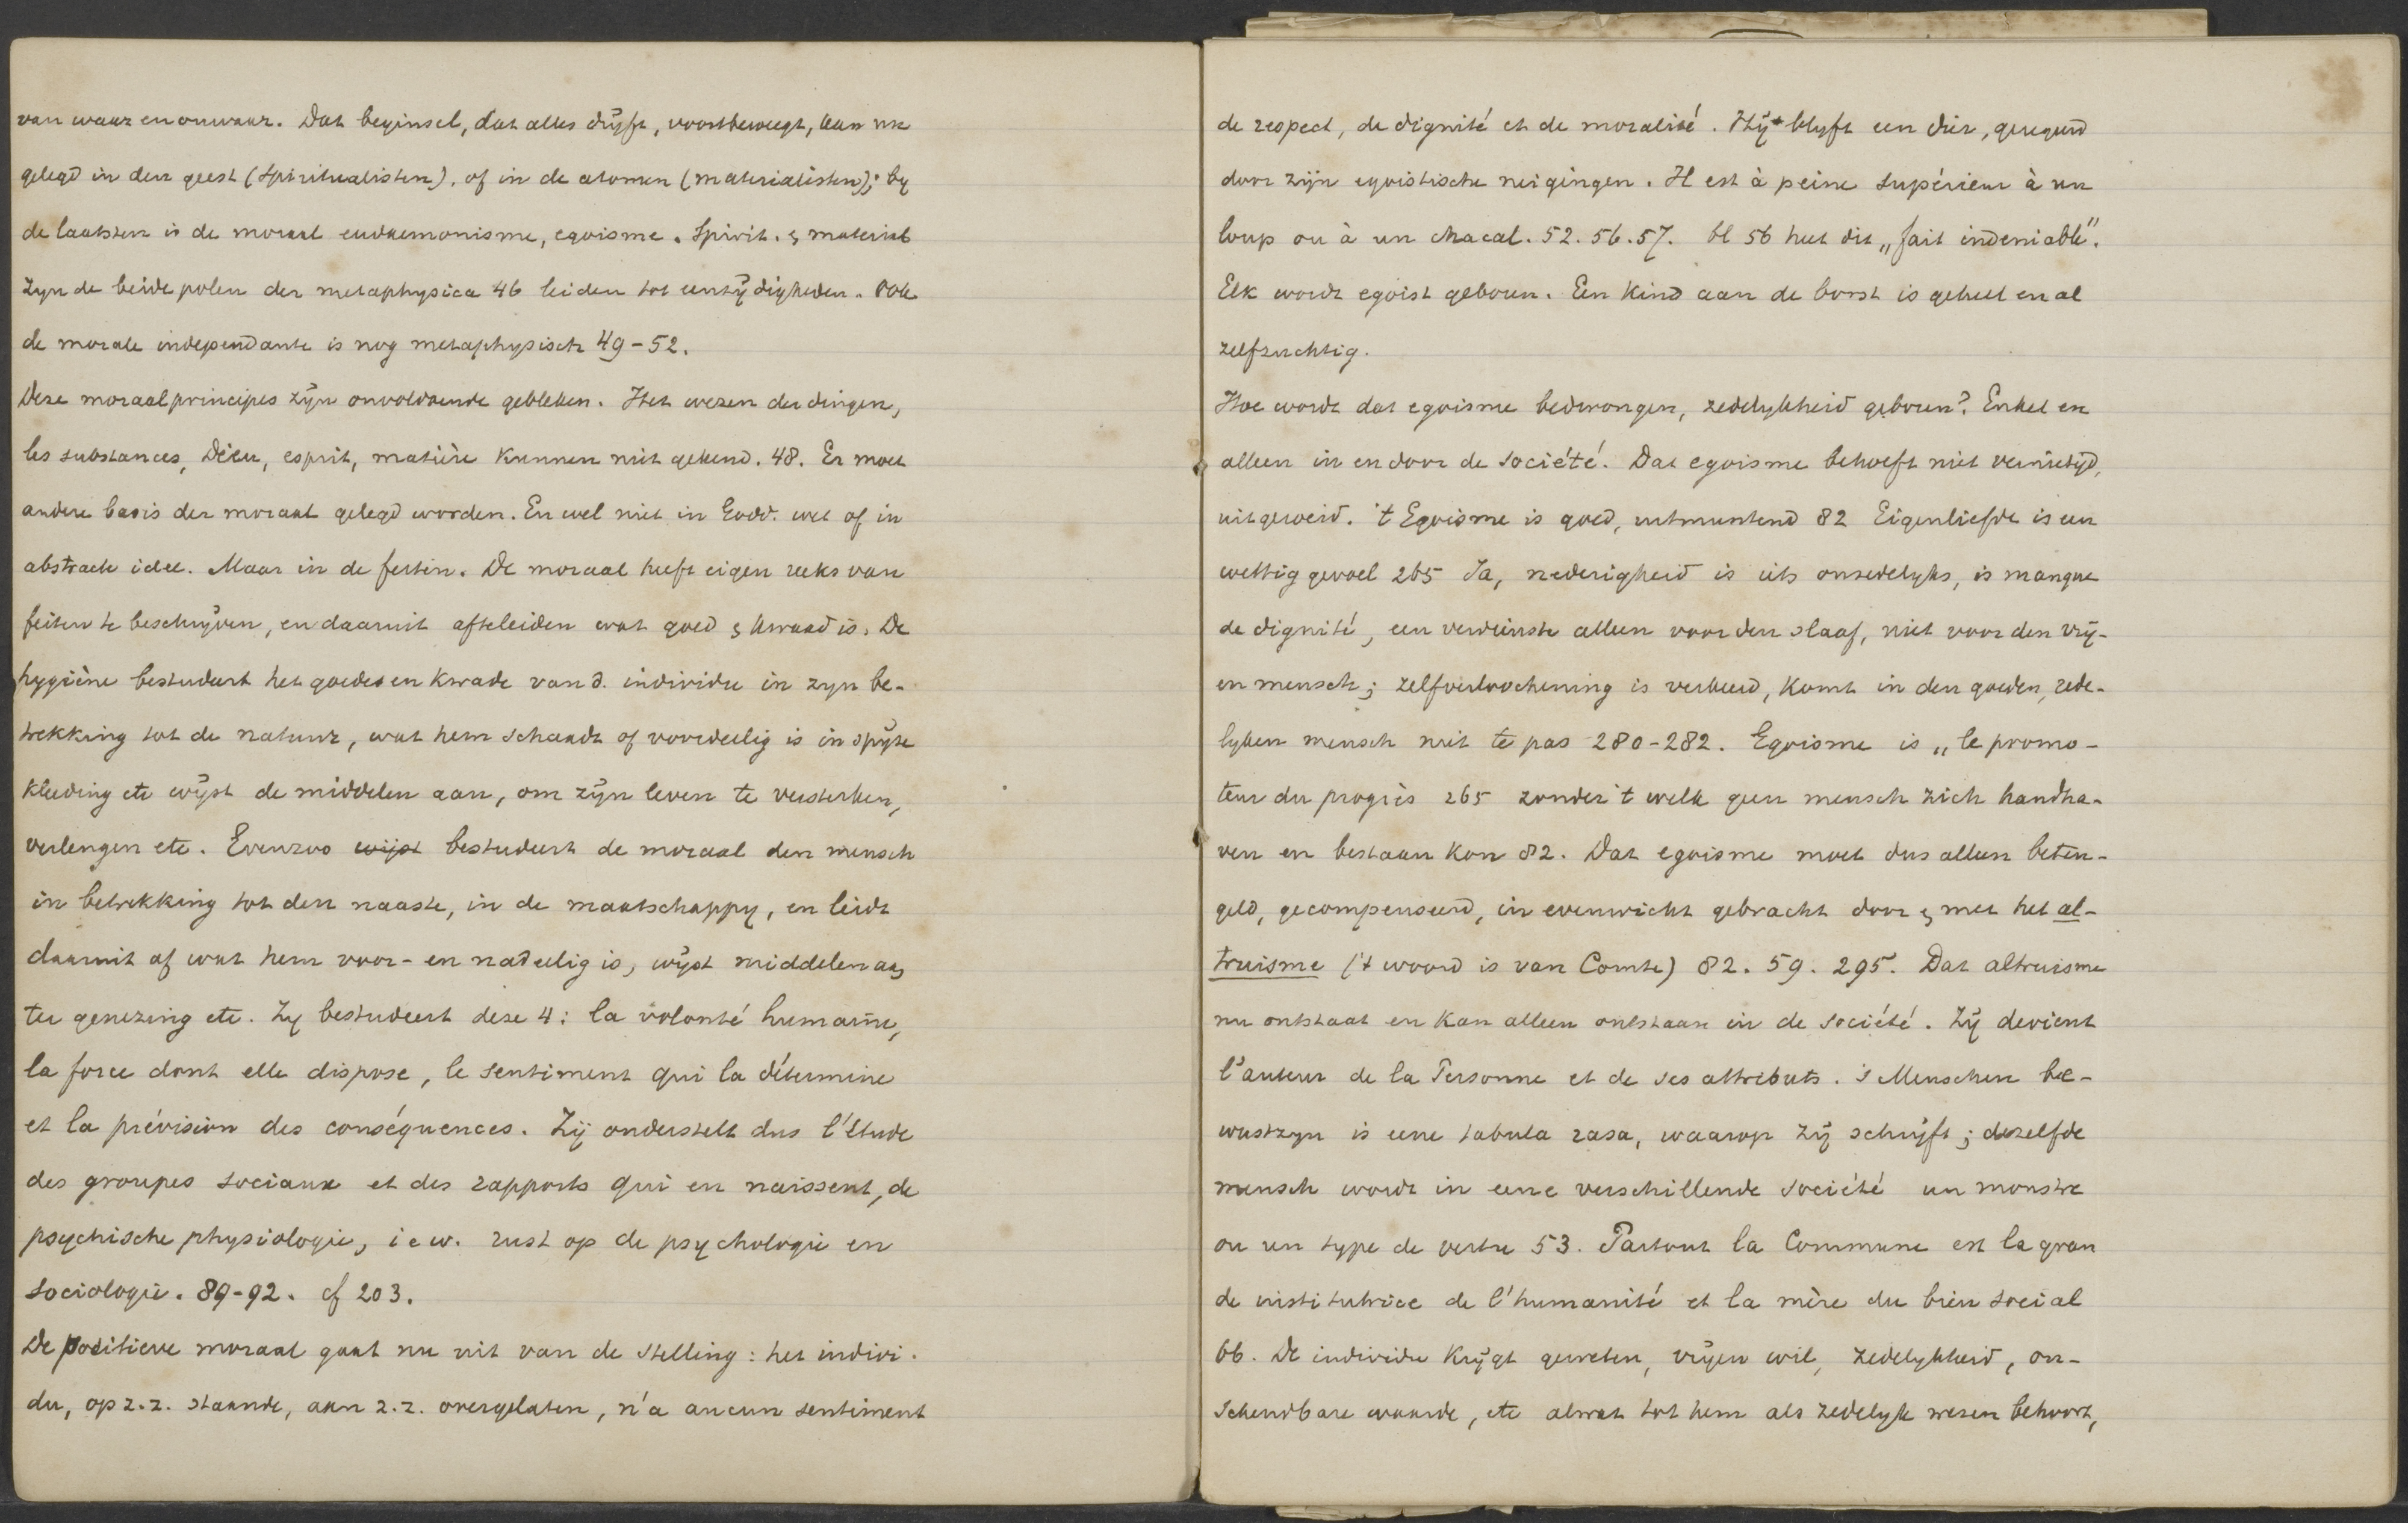 van waar en onwaar. Dat beginsel, dat alles drijft, voortbeweegt, kan nu
gelegd in den geest (Spiritualisten), of in de atomen (materialisten); by
de laatsten is de moraal eudaemonisme, egoisme. Spirit. & material
zyn de beide polen der metaphysica 46 leiden tot eenzijdigheden. Ook
de morale independante is nog metaphysisch 49-52.
Deze moraalprincipes zijn onvoldoende gebleken. Het wezen der dingen,
les substances, Dieu, esprit, matière kunnen niet gekend. 48. Er moet
andere basis der moraal gelegd worden. En wel niet in Godd. wet of in
abstracte idee. Maar in de feiten. De moraal heeft eigen reeks van
feiten te beschrijven, en daaruit afteleiden wat goed & kwaad is. De
hygiène bestudeert het goede en kwade van d. individu in zyn be-
trekking tot de natuur, wat hem schaadt of voordeelig is in spijze
kleeding etc wijst de middelen aan, om zijn leven te versterken,
verlengen etc. Evenzoo wijst bestudeert de moraal den mensch
in betrekking tot den naaste, in de maatschappy, en leidt
daaruit af wat hem voor- en nadeelig is, wijst middelen aan
ter genezing etc. Zy bestudeert deze 4: la volonté humaine,
la force dont elle dispose, le sentiment qui la détermine
et la prévision des conséquences. Zij onderstelt dus l'étude
des groupes sociaux et des rapports qui en naissent, de
psychische physiologie, i e w. rust op de psychologie en
sociologie. 89-92. cf 203.
De positieve moraal gaat nu uit van de stelling: het indivi-
du, op z.z. staande, aan z.z. overgelaten, n'a aucun sentiment
de respect, de dignité et de moralité. Hij blyft een dier, geregeerd
door zijn egoistische neigingen. Il est à peine supérieur à un
loup ou à un chacal. 52. 56. 57. bl 56 heet dit „fait indeniable".
Elk wordt egoist geboren. Een kind aan de borst is geheel en al
zelfzuchtig.
Hoe wordt dat egoisme bedwongen, zedelykheid geboren? Enkel en
alleen in en door de société. Dat egoisme behoeft niet vernietigd,
uitgeroeid. 't Egoisme is goed, uitmuntend 82 Eigenliefde is een
wettig gevoel 265 Ja, nederigheid is iets onzedelyks, is manque
de dignité, een verdienste alleen voor den slaaf, niet voor den vrij-
en mensch; zelfverloochening is verkeerd, komt in den goeden, zede-
lyken mensch niet te pas 280-282. Egoisme is „le promo-
teur du progrès 265 zonder 't welk geen mensch zich handha-
ven en bestaan kon 82. Dat egoisme moet dus alleen beteu-
geld, gecompenseerd, in evenwicht gebracht door & met het al-
truisme ('t woord is van Comte) 82. 59. 295. Dat altruisme
nu ontstaat en kan alleen ontstaan in de société. Zij devient
l'auteur de la Personne et de ses attributs. 's Menschen be-
wustzyn is eene tabula rasa, waarop zij schrijft; dezelfde
mensch wordt in eene verschillende société un monstre
ou un type de vertu 53. Partout la Commune est la gran
de institutrice de l'humanité et la mère du bien social
66. De individu krijgt geweten, vrijen wil, zedelykheid, on-
schendbare waarde, etc alwat tot hem als zedelyk wezen behoort,